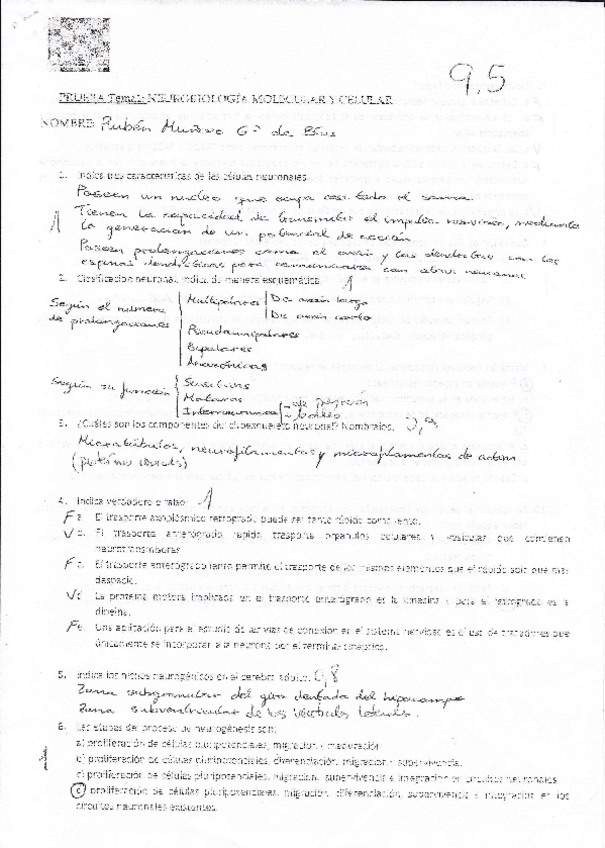 9.5
PRUEBA Tema1: NEUROBIOLOGÍA MOLECULAR Y CELULAR
NOMBRE: Rubén 6º de Bius
1. Indica tres características de las células neuronales
Poseen un nucleo que ocupa casi todo el soma.
Tienen la capacidad de transmitir el impulso nervioso, mediante
la generación de un potencial de acción
Poseen prolongaciones como el axón y las dendritas con las
espinas dendríticas para comunicarse con otras neuronas.
1
2. Clasificación neuronal. Indica de manera esquemática 1
Según el número de prolongaciones
Multipolares
De axón largo
De axón corto
Pseudounipolares
Bipolares
Anaxónicas
Según su función
Sensitivas
Motoras
Interneuronas
- de proyección
- locales
3. ¿Cuáles son los componentes del citoesqueleto neuronal? Nómbralos. 0,9
Microtúbulos, neurofilamentos y microfilamentos de actina
4. Indica verdadero o falso: 1
F a. El trasporte axoplásmico retrogrado puede ser tanto rápido como lento.
V b. El trasporte anterógrado rapido trasporta organulos celulares y vesiculas que contienen
neurotransmisores
F c. El trasporte anterogrado lento permite el trasporte de los mismos elementos que el rápido solo que mas
despacio.
V d. La proteína motora implicada en el trasporte anterogrado es la kinesina y para el retrogrado es la
dineina.
F e. Una aplicación para el estudio de las vías de conexión en el sistema nervioso es el uso de trazadores que
únicamente se incorporan a la neurona por el terminal sináptico.
5. Indica los nichos neurogénicos en el cerebro adulto. 0,8
Zona subgranular del giro dentado del hipocampo
Zona subventricular de los ventriculos laterales.
6. Las etapas del proceso de neurogénesis son:
a) proliferación de células pluripotenciales, migracion y maduración
b) proliferación de células pluripotenciales, diferenciación, migracion y supervivencia.
c) proliferación de células pluripotenciales, migracion, supervivencia e integracion en circuitos neuronales.
proliferación de células pluripotenciales, migracion, diferenciación, supervivencia e integracion en los
circuitos neuronales existentes.